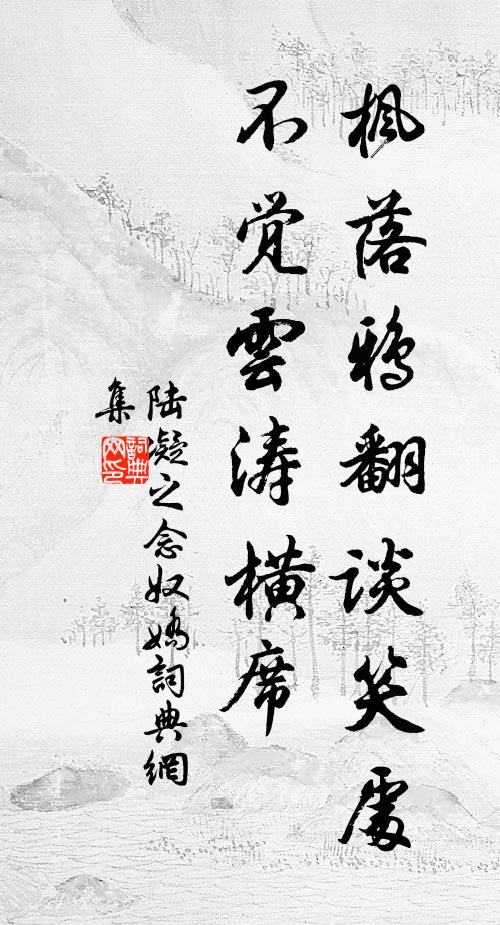 枫落鸦翻谈笑處
不觉雲涛横席
陆凝之念奴嬌詞典網
集
詞典网印